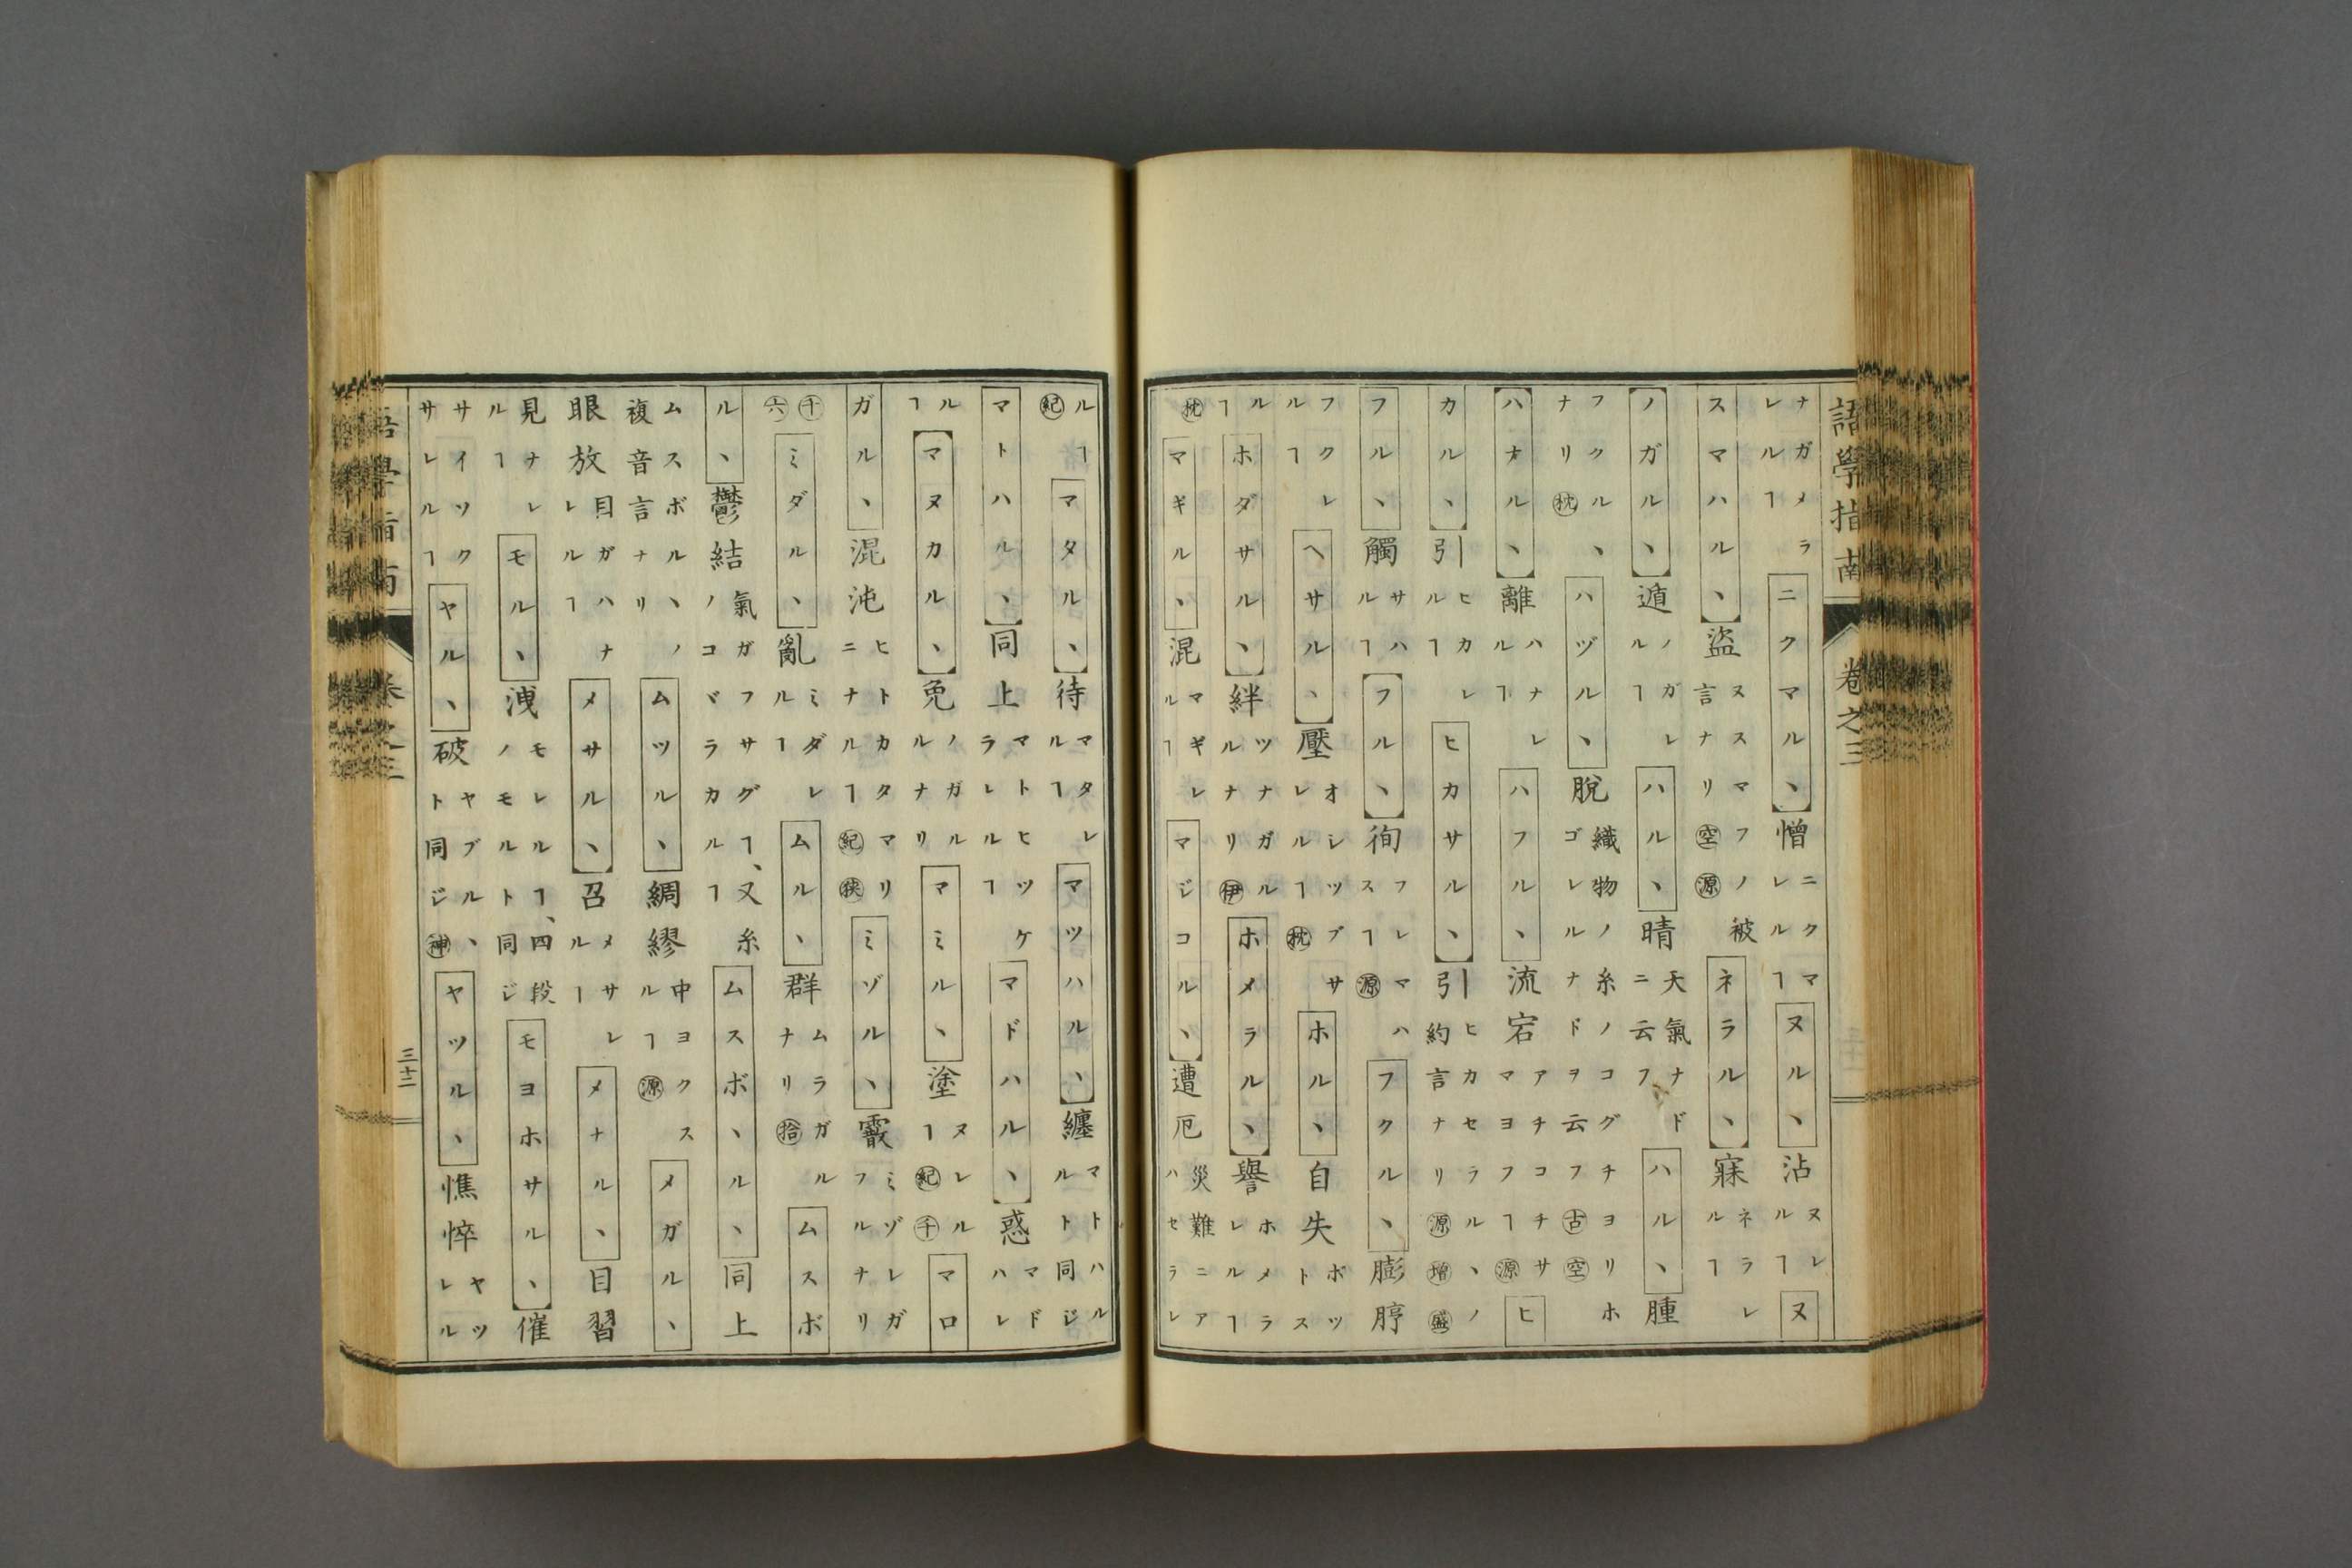 語學指南 卷之三
ナガメラレルヿ ニクマルヽ 憎 ニクマレルヿ ヌルヽ 沾 ヌレルヿ ヌ
スマハルヽ 盗 ヌスマフノ被言ナリ空源 ネラルヽ 寐 ネラレルヿ
ノガルヽ 遁 ノガレルヿ ハルヽ 晴 天氣ナドニ云フ ハルヽ 腫
フクルヽナリ枕 ハヅルヽ 脫 織物ノ糸ノコグチヨリホゴレルナドヲ云フ古空
ハナルヽ 離 ハナレルヿ ハフルヽ 流宕 アチコチサマヨフヿ源 ヒ
カルヽ 引 ヒカレルヿ ヒカサルヽ 引 ヒカセラルヽノ約言ナリ源増盛
フルヽ 觸 サハルヿ フルヽ 徇 フレマハスヿ源 フクルヽ 膨脝
フクレルヿ ヘサルヽ 壓 オシツブサレルヿ枕 ホルヽ 自失 ボツトス
ルヿ ホダサルヽ 絆 ツナガルルナリ伊 ホメラルヽ 譽 ホメラレルヿ
枕 マギルヽ 混 マギレルヿ マジコルヽ 遭厄 災難ニアハセラレ
ルヿ紀 マタルヽ 待 マタレルヿ マツハルヽ 纏 マトハルルト同ジ
マトハルヽ 同上 マトヒツケラレルヿ マドハルヽ 惑 マドハレ
ルヿ マヌカルヽ 免 ノガルルナリ マミルヽ 塗 ヌレルヿ紀千 マロ
ガルヽ 混沌 ヒトカタマリニナルヿ紀狭 ミゾルヽ 霰 ミゾレガフルナリ
千六 ミダルヽ 亂 ミダレルヿ ムルヽ 群 ムラガルナリ拾 ムスボ
ルヽ 鬱結 氣ガフサグヿ、又糸ノコヾラカルヿ ムスボヽルヽ 同上
ムスボルヽノ複音言ナリ ムツルヽ 綢繆 中ヨクスルヿ源 メガルヽ
眼放 目ガハナレルヿ メサルヽ 召 メサレルヿ メナルヽ 目習
見ナレルヿ モルヽ 洩 モレルヿ、四段ノモルト同ジ モヨホサルヽ 催
サイツクサレルヿ ヤルヽ 破 ヤブルヽト同ジ神 ヤツルヽ 憔悴 ヤツレル
語學指南 卷之三 三十二